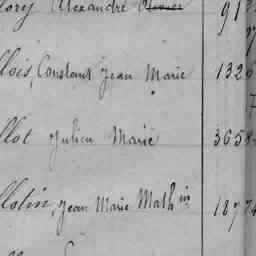 lory Alexandre Olivier 913
llois, Constant Jean Marie 1320
llot Julien Marie 3658
llotin, Jean Marie Math in 1874